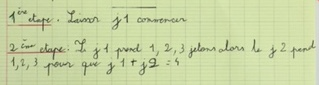 1ère étape. Laisser j1 commencer
2ème étape. Si j1 prend 1, 2, 3 jetons alors le j2 prend
1, 2, 3 pour que j1 + j2 = 4